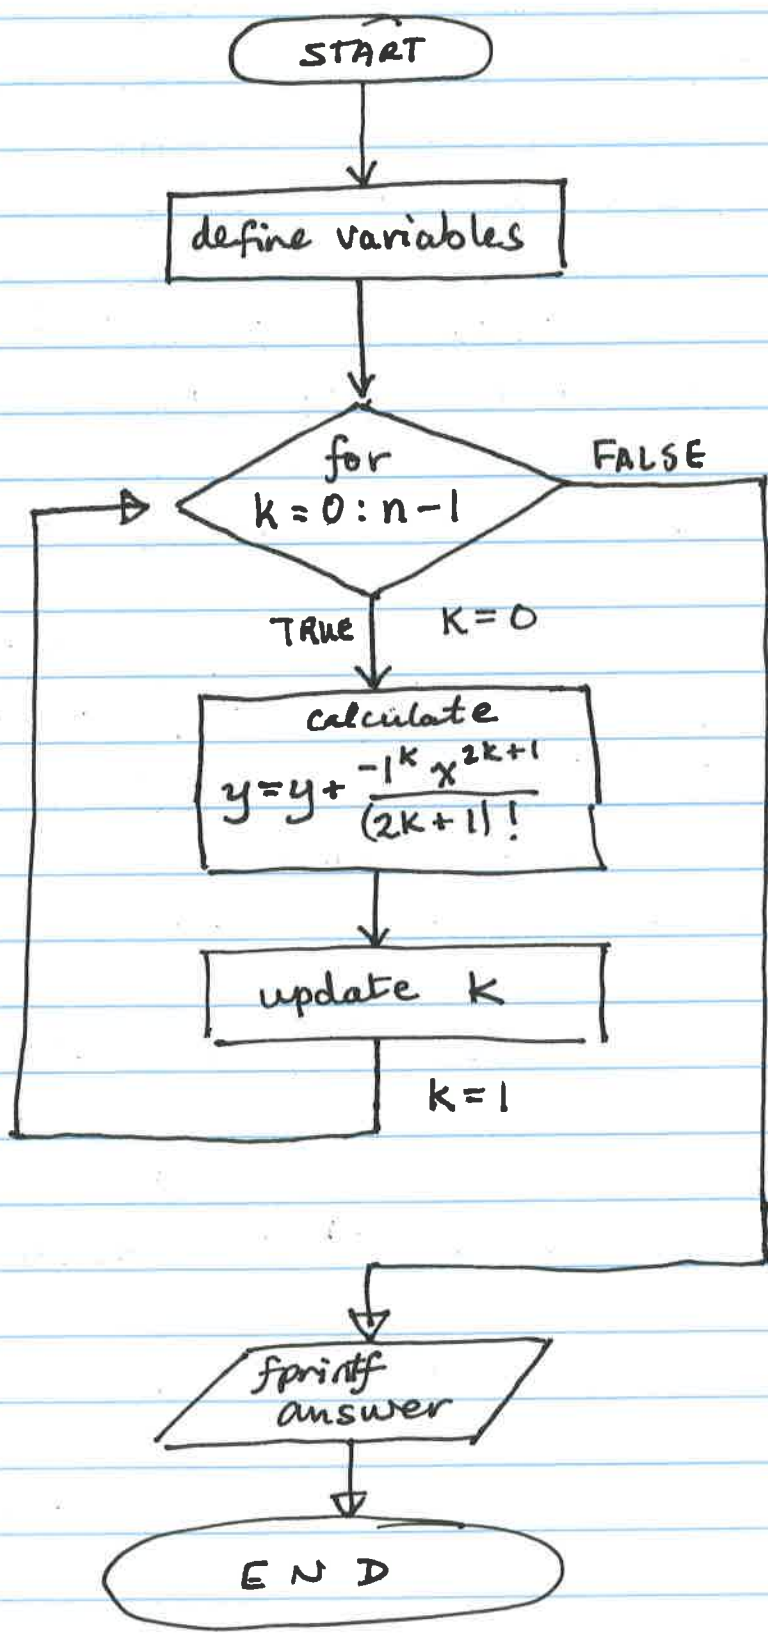 START
define variables
for
k = 0 : n - 1
FALSE
TRUE
K = 0
calculate
y = y + \frac{-1^k x^{2k+1}}{(2k+1)!}
update K
k = 1
fprintf
answer
END